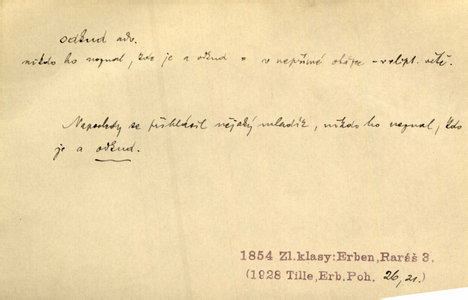 odkud adv.
nikdo ho neznal, kdo je a odkud = v nepřímé otázce – velipt. větě.
Naposledy se přihlásil nějaký mladík, nikdo ho neznal, kdo
je a odkud.
1854 Zl.klasy:Erben,Raráš 3.
(1928 Tille,Erb.Poh. 26,21.)